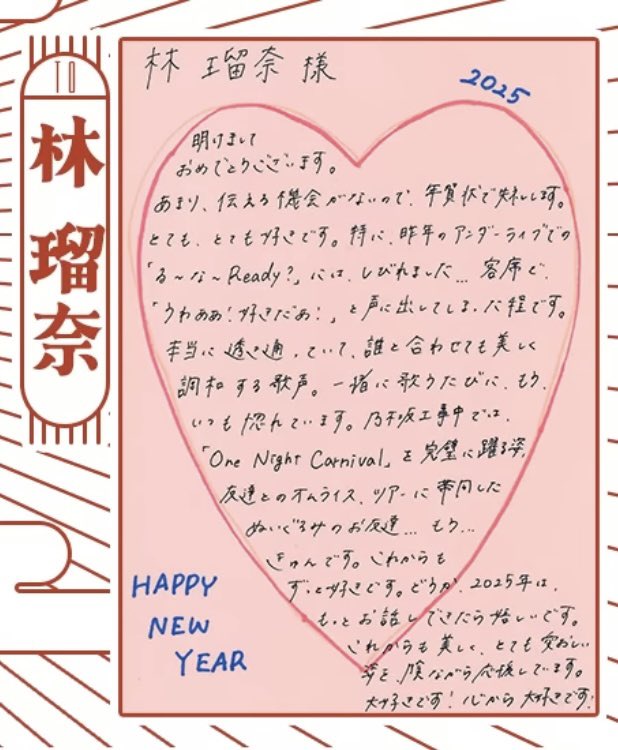 TO
林 瑠奈
林 瑠奈 様
2025
明けまして
おめでとうございます。
あまり、伝える機会がないので、年賀状で失礼します。
とても、とても好きです。特に、昨年のアンダーライブでの
「る〜な〜Ready?」には、しびれました… 客席で、
「うわああ!好きだぁ!」と声に出してしまった程です。
本当に透き通っていて、誰と合わせても美しく
調和する歌声。一緒に歌うたびに、もう、
いつも惚れています。乃木坂工事中では、
「One Night Carnival」を完璧に踊る姿、
友達とのオムライス、ツアーに帯同した
ぬいぐるみのお友達… もう…
きゅんです。これからも
ずっと好きです。どうか、2025年は、
もっとお話しできたら嬉しいです。
これからも美しく、とても愛おしい
姿を、陰ながら応援しています。
大好きです!心から大好きです!
HAPPY
NEW
YEAR